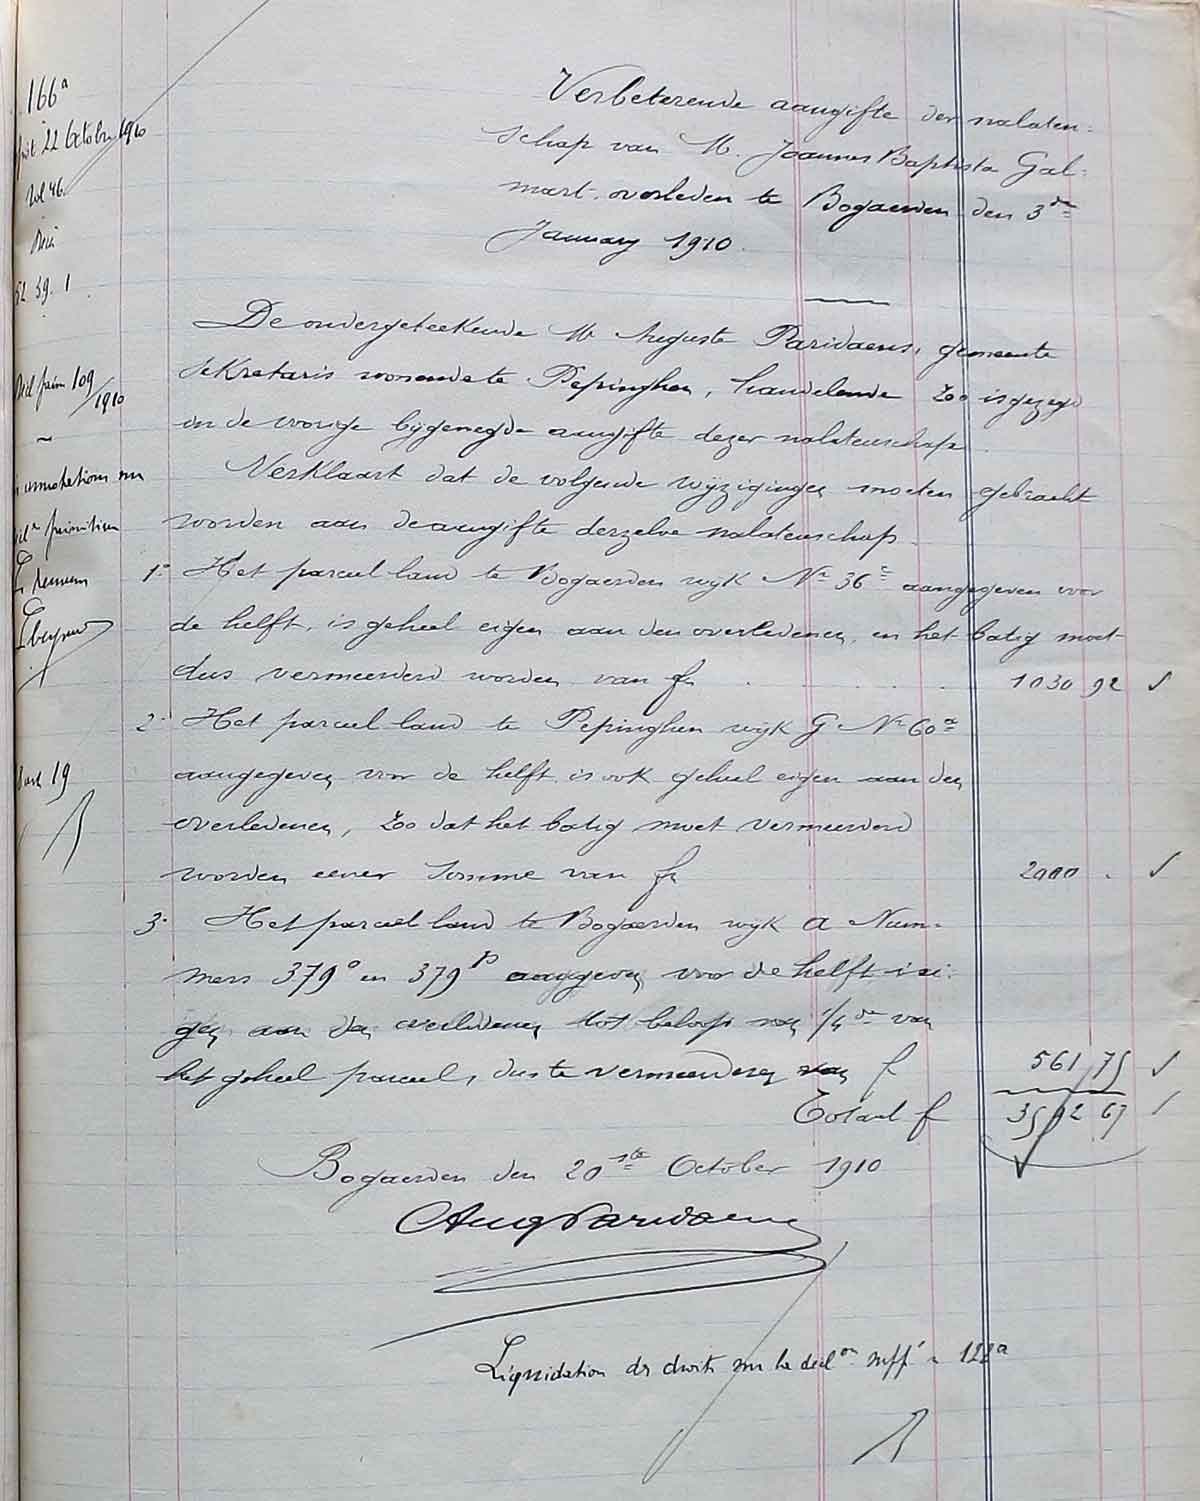 166ª
22 Octobre 1910
Vol 46
52 59. 1
Verbeterende aangifte der nalaten=
schap van M. Joannes Baptista Gal=
mart. overleden te Bogaerden den 3de
January 1910.
De ondergeteekende Mr Auguste Paridaens, gemeente
sekretaris woonende te Pepinghen, handelende zoo is gezegd
in de vorige bijgevoegde aangifte dezer nalatenschap.
109/1910
annotations sur
primitive
Verklaart dat de volgende wijzigingen moeten gebracht
worden aan de aangifte derzelve nalatenschap.
1° Het parceel land te Bogaerden wijk Nr 36c aangegeven voor
de helft, is geheel eigen aan den overledenen, en het batig moet
dus vermeerderd worden van fr 1030 92
2° Het parceel land te Pepinghen wijk G Nr 60a
aangegeven voor de helft is ook geheel eigen aan den
overledenen, zoo dat het batig moet vermeerderd
worden eener somme van fr 2000 .
19
3° Het parceel land te Bogaerden wijk A Num=
mers 379o en 379p aangegeven voor de helft is ei=
gen aan den overledenen tot beloop van 1/4de van
het geheel parceel, dus te vermeerderen van f 561,75
Totaal f 3592 67
Bogaerden den 20ste October 1910
Aug Paridaens
Liquidation des droits sur la décl on suppl n 122a